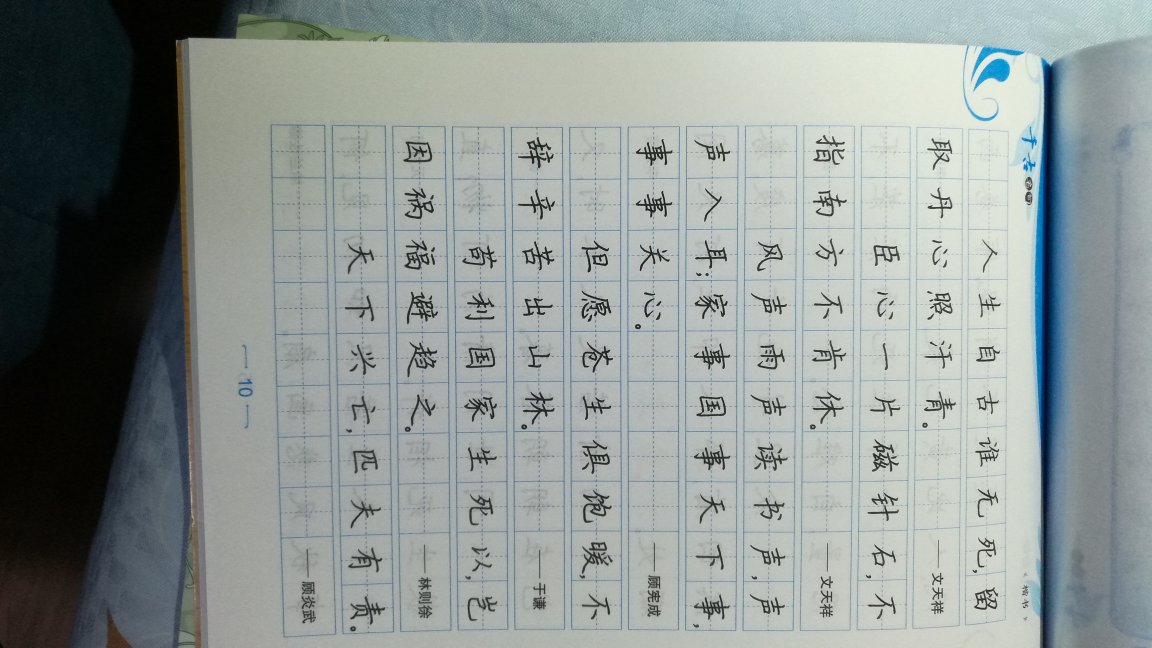 千古
楷书
人生自古谁无死,留
取丹心照汗青。 ——文天祥
臣心一片磁针石,不
指南方不肯休。 ——文天祥
风声雨声读书声,声
声入耳;家事国事天下事,
事事关心。 ——顾宪成
但愿苍生俱饱暖,不
辞辛苦出山林。 ——于谦
苟利国家生死以,岂
因祸福避趋之。 ——林则徐
天下兴亡,匹夫有责。
顾炎武
10